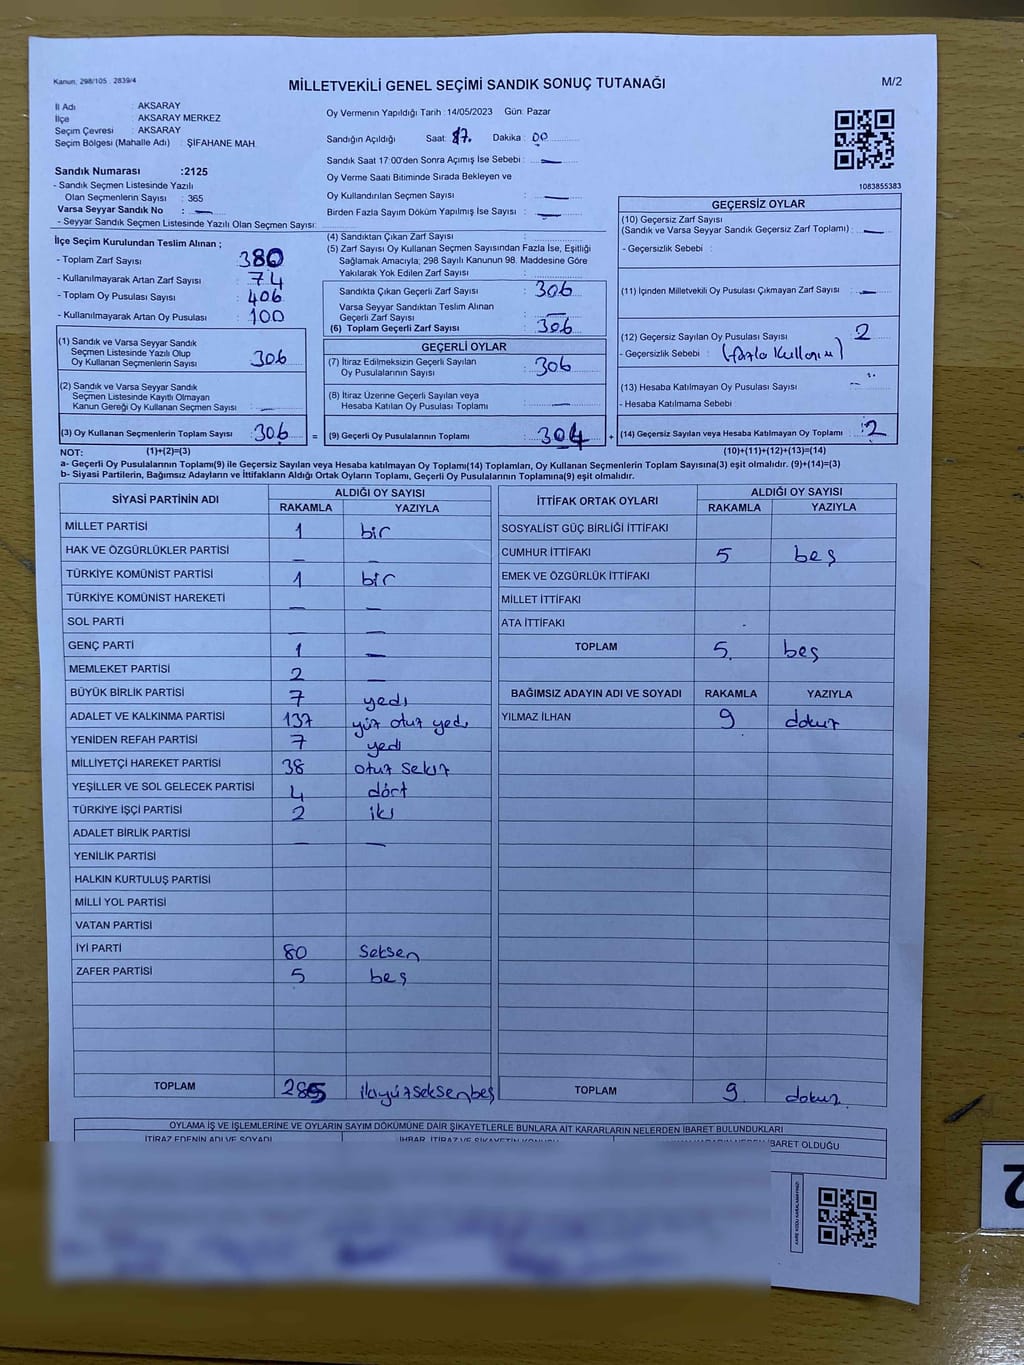 Kanun, 298/105 . 2839/4
MİLLETVEKİLİ GENEL SEÇİMİ SANDIK SONUÇ TUTANAĞI
M/2
İl Adı : AKSARAY
İlçe : AKSARAY MERKEZ
Seçim Çevresi : AKSARAY
Seçim Bölgesi (Mahalle Adı) : ŞİFAHANE MAH.
Sandık Numarası :2125
- Sandık Seçmen Listesinde Yazılı
Olan Seçmenlerin Sayısı : 365
Varsa Seyyar Sandık No : —
- Seyyar Sandık Seçmen Listesinde Yazılı Olan Seçmen Sayısı:
Oy Vermenin Yapıldığı Tarih : 14/05/2023 Gün: Pazar
Sandığın Açıldığı Saat: 17. Dakika : 00
Sandık Saat 17:00'den Sonra Açımış İse Sebebi : —
Oy Verme Saati Bitiminde Sırada Bekleyen ve
Oy Kullandırılan Seçmen Sayısı : —
Birden Fazla Sayım Döküm Yapılmış İse Sayısı : —
1083855383
İlçe Seçim Kurulundan Teslim Alınan ;
- Toplam Zarf Sayısı : 380
- Kullanılmayarak Artan Zarf Sayısı : 74
- Toplam Oy Pusulası Sayısı : 406
- Kullanılmayarak Artan Oy Pusulası : 100
(1) Sandık ve Varsa Seyyar Sandık
Seçmen Listesinde Yazılı Olup
Oy Kullanan Seçmenlerin Sayısı : 306
(2) Sandık ve Varsa Seyyar Sandık
Seçmen Listesinde Kayıtlı Olmayan
Kanun Gereği Oy Kullanan Seçmen Sayısı : —
(3) Oy Kullanan Seçmenlerin Toplam Sayısı : 306
(4) Sandıktan Çıkan Zarf Sayısı :
(5) Zarf Sayısı Oy Kullanan Seçmen Sayısından Fazla İse, Eşitliği
Sağlamak Amacıyla; 298 Sayılı Kanunun 98. Maddesine Göre
Yakılarak Yok Edilen Zarf Sayısı :
Sandıkta Çıkan Geçerli Zarf Sayısı : 306
Varsa Seyyar Sandıktan Teslim Alınan
Geçerli Zarf Sayısı : —
(6) Toplam Geçerli Zarf Sayısı : 306
GEÇERLİ OYLAR
(7) İtiraz Edilmeksizin Geçerli Sayılan
Oy Pusulalarının Sayısı : 306
(8) İtiraz Üzerine Geçerli Sayılan veya
Hesaba Katılan Oy Pusulası Toplamı : —
= (9) Geçerli Oy Pusulalarının Toplamı : 304
GEÇERSİZ OYLAR
(10) Geçersiz Zarf Sayısı
(Sandık ve Varsa Seyyar Sandık Geçersiz Zarf Toplamı) : —
- Geçersizlik Sebebi :
(11) İçinden Milletvekili Oy Pusulası Çıkmayan Zarf Sayısı : —
(12) Geçersiz Sayılan Oy Pusulası Sayısı : 2
- Geçersizlik Sebebi : (fazla kullanım)
(13) Hesaba Katılmayan Oy Pusulası Sayısı : —
- Hesaba Katılmama Sebebi
+ (14) Geçersiz Sayılan veya Hesaba Katılmayan Oy Toplamı : 2
NOT: (1)+(2)=(3) (10)+(11)+(12)+(13)=(14)
a- Geçerli Oy Pusulaları Toplamı(9) ile Geçersiz Sayılan veya Hesaba katılmayan Oy Toplamı(14) Toplamları, Oy Kullanan Seçmenlerin Toplam Sayısına(3) eşit olmalıdır. (9)+(14)=(3)
b- Siyasi Partilerin, Bağımsız Adayların ve İttifakların Aldığı Ortak Oyların Toplamı, Geçerli Oy Pusulalarının Toplamına(9) eşit olmalıdır.
SİYASİ PARTİNİN ADI ALDIĞI OY SAYISI
RAKAMLA YAZIYLA
MİLLET PARTİSİ 1 bir
HAK VE ÖZGÜRLÜKLER PARTİSİ — —
TÜRKİYE KOMÜNİST PARTİSİ 1 bir
TÜRKİYE KOMÜNİST HAREKETİ — —
SOL PARTİ — —
GENÇ PARTİ 1 —
MEMLEKET PARTİSİ 2 —
BÜYÜK BİRLİK PARTİSİ 7 yedi
ADALET VE KALKINMA PARTİSİ 137 yüz otuz yedi
YENİDEN REFAH PARTİSİ 7 yedi
MİLLİYETÇİ HAREKET PARTİSİ 38 otuz sekiz
YEŞİLLER VE SOL GELECEK PARTİSİ 4 dört
TÜRKİYE İŞÇİ PARTİSİ 2 iki
ADALET BİRLİK PARTİSİ — —
YENİLİK PARTİSİ
HALKIN KURTULUŞ PARTİSİ
MİLLİ YOL PARTİSİ
VATAN PARTİSİ
İYİ PARTİ 80 seksen
ZAFER PARTİSİ 5 beş
TOPLAM 285 ikiyüzseksenbeş
İTTİFAK ORTAK OYLARI ALDIĞI OY SAYISI
RAKAMLA YAZIYLA
SOSYALİST GÜÇ BİRLİĞİ İTTİFAKI
CUMHUR İTTİFAKI 5 beş
EMEK VE ÖZGÜRLÜK İTTİFAKI
MİLLET İTTİFAKI
ATA İTTİFAKI
TOPLAM 5. beş
BAĞIMSIZ ADAYIN ADI VE SOYADI RAKAMLA YAZIYLA
YILMAZ İLHAN 9 dokuz
TOPLAM 9. dokuz.
OYLAMA İŞ VE İŞLEMLERİNE VE OYLARIN SAYIM DÖKÜMÜNE DAİR ŞİKAYETLERLE BUNLARA AİT KARARLARIN NELERDEN İBARET BULUNDUKLARI
İTİRAZ EDENİN ADI VE SOYADI İHBAR, İTİRAZ VE ŞİKAYETİN KONUSU NEDEN İBARET OLDUĞU